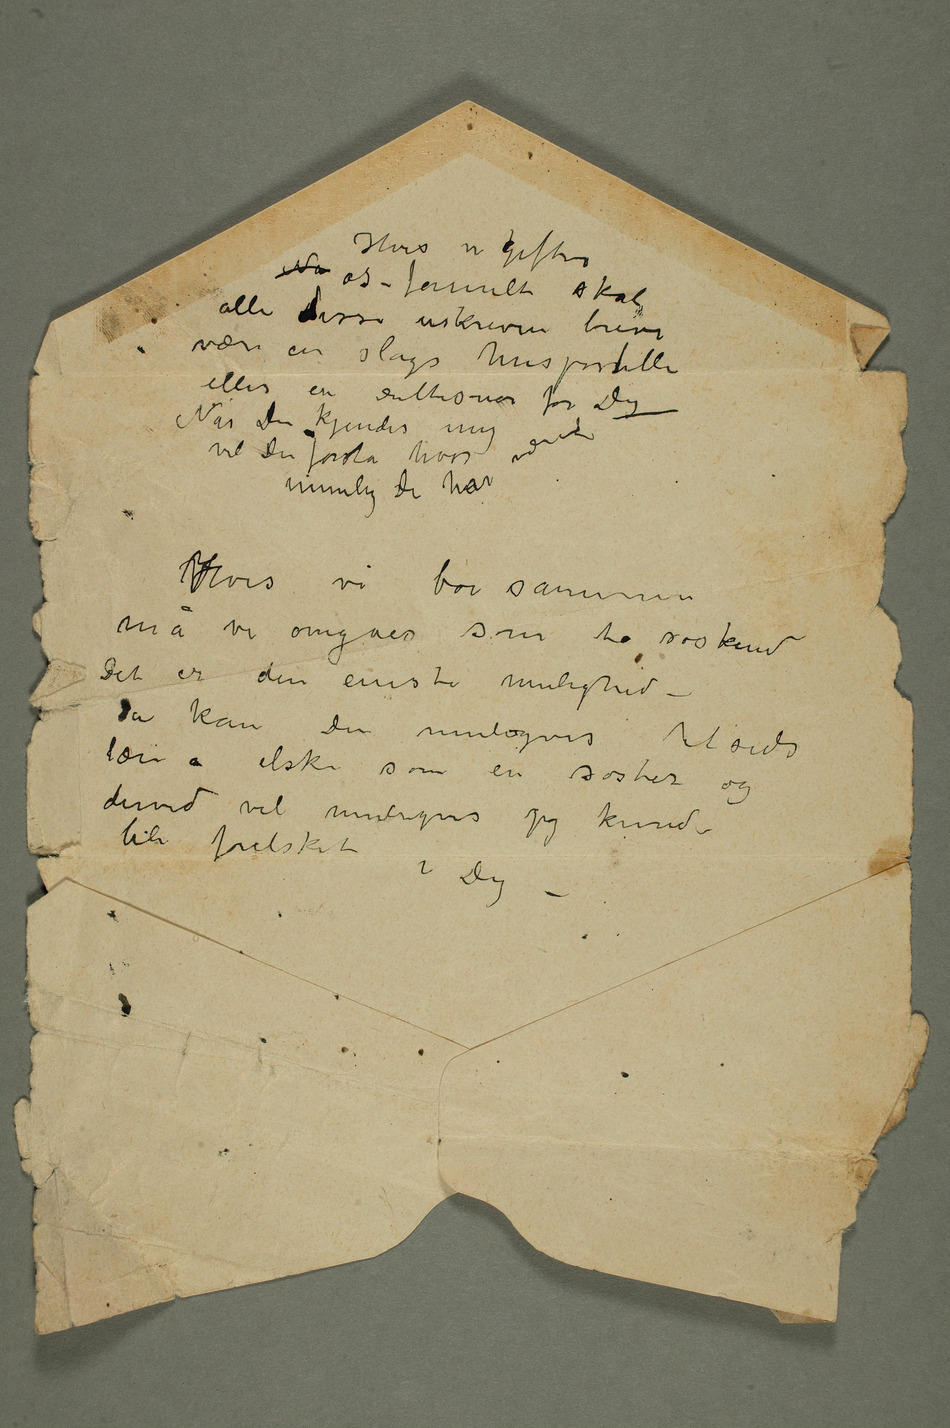 Hvis vi gifter
os – formelt skal
alle disse uskreven breve
være en slags huspostille
eller en rettesnor for Dig
Når Du kjender mig
vil Du forstå hvor været
umulig de har
Hvis vi bor sammen
må vi omgaes som to søskend
Det er den eneste mulighed –
Da kan Du muligvis
lære a elske som en søster og
derved vil muligvis jeg kunde
bli forelsket
i Dig –